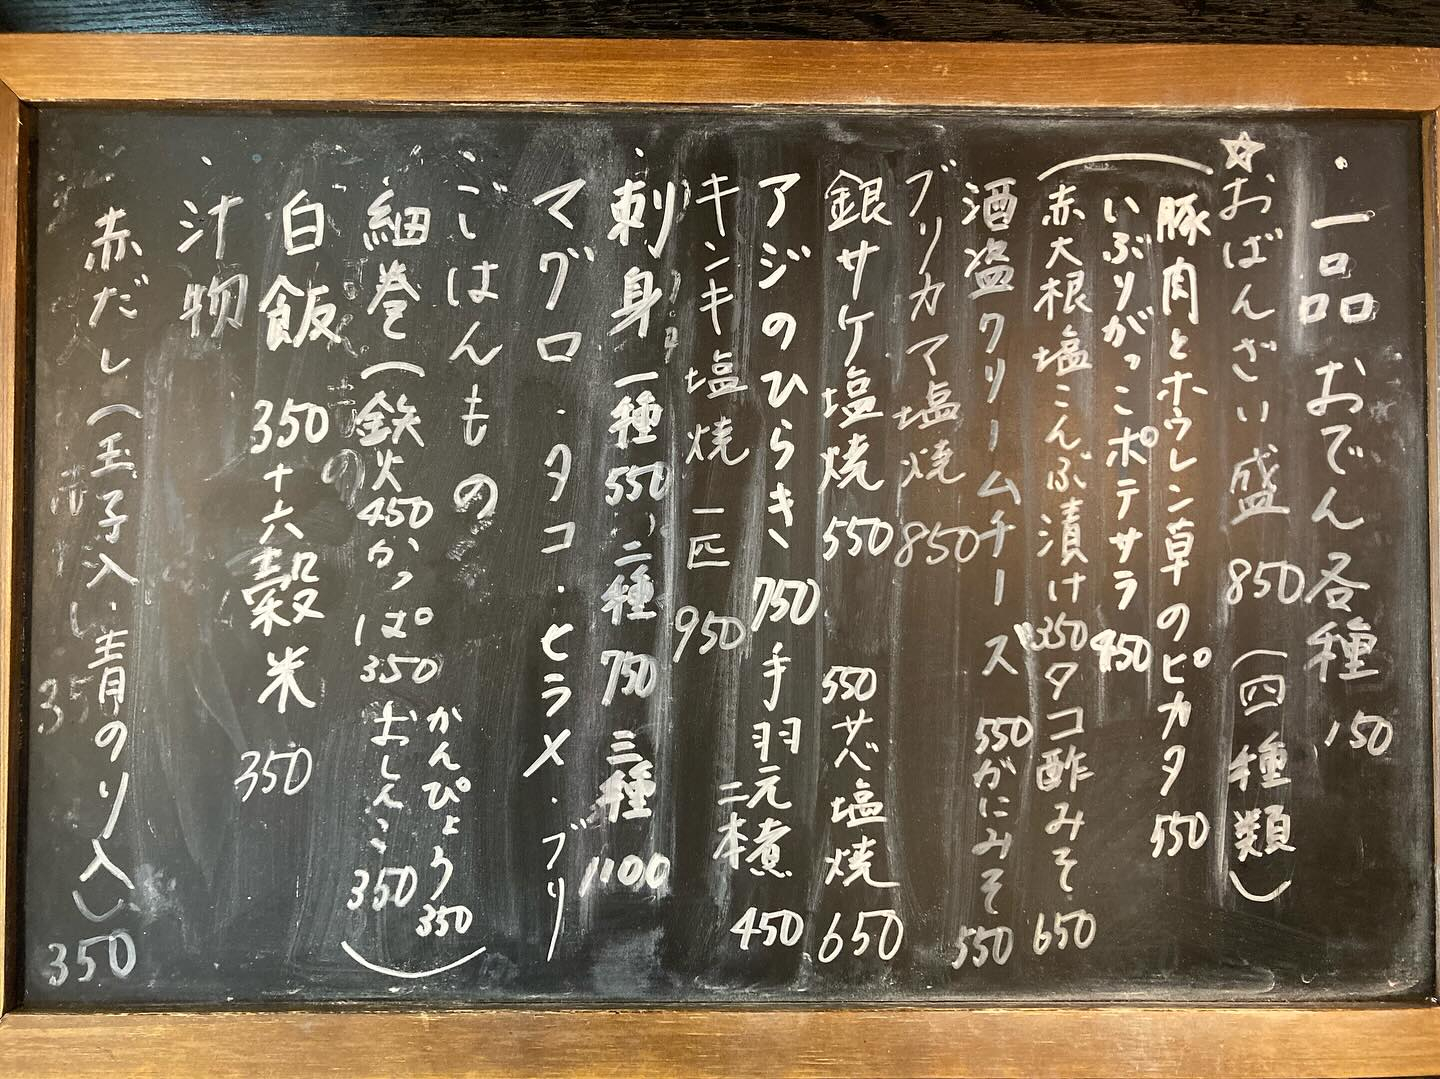 ・一品 おでん各種 150
☆おばんざい盛 850 (四種類)
豚肉とホウレン草のピカタ 550
いぶりがっこポテサラ 450
赤大根塩こんぶ漬け350 タコ酢みそ 650
酒盗クリームチーズ 550 がにみそ 550
ブリカマ塩焼 850
銀サケ塩焼 550 サバ塩焼 650
550
アジのひらき 750 手羽元煮 二本 450
キンキ塩焼 一匹 950
・刺身 一種 550 二種 750 三種 1100
マグロ・タコ・ヒラメ・ブリ
・ごはんもの
細巻(鉄火450 かっぱ350 かんぴょう350 おしんこ350)
白飯 350 十六穀米 350
・汁物
赤だし(玉子入い青のり入) 350